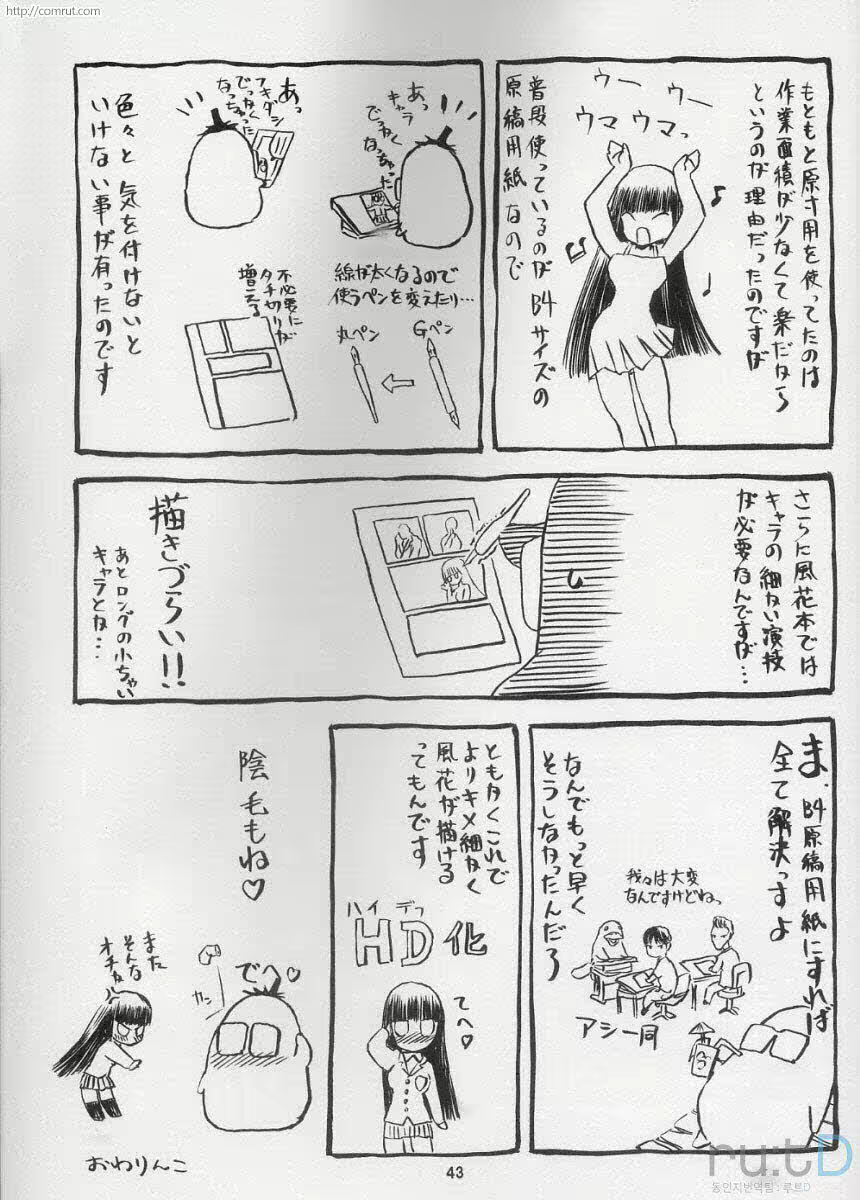 http://comrut.com
もともと原寸用を使ってたのは
作業面積が少なくて楽だから
というのが理由だったのですが
ウー
ウー
ウマ ウマっ
普段使っているのが B4サイズの
原稿用紙なので
あっ
キャラ
でっかく
なっちゃった
あっ
フキダシ
でっかく
なっちゃった
線が太くなるので
使うペンを変えたり…
Gペン
丸ペン
不必要に
タチ切りが
増える
色々と気を付けないと
いけない事が有ったのです
さらに風花本では
キャラの細かい演技
が必要なんですが…
描きづらい!!
あとロングの小ちゃい
キャラとか…
ま、B4原稿用紙にすれば
全て解決っすよ
なんでもっと早く
そうしなかったんだろ
我々は大変
なんですけどねっ
アシ一同
ともかくこれで
よりキメ細かく
風花が描ける
ってもんです
ハイ デフ
HD化
てへ♡
陰毛もね♡
でへ♡
カン
また
そんな
オチか
おわりんこ
43
ru:tD
동인지번역팀 : 루트D